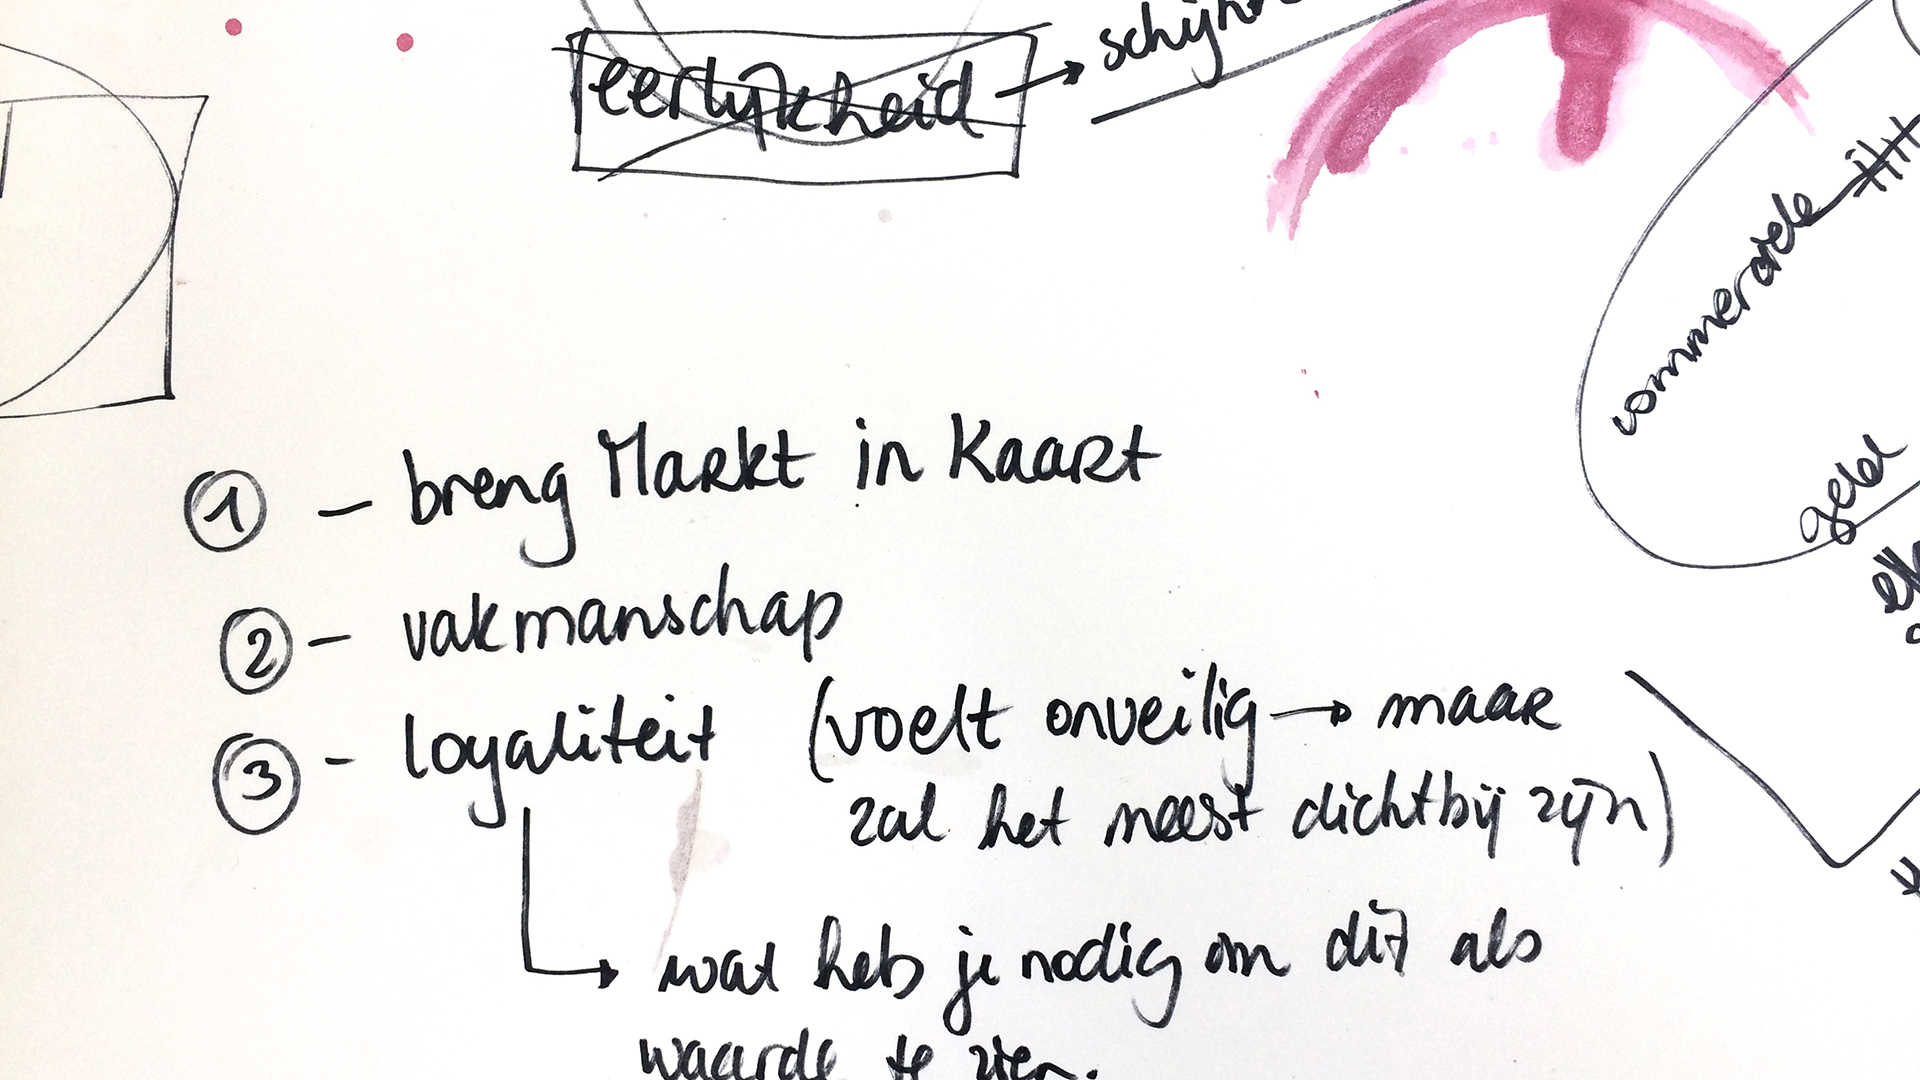 eerlijkheid →
① – breng Markt in Kaart
② – vakmanschap
③ – loyaliteit (voelt onveilig → maar
zal het meest dichtbij zijn)
→ wat heb je nodig om dit als
waarde te zien.
geld